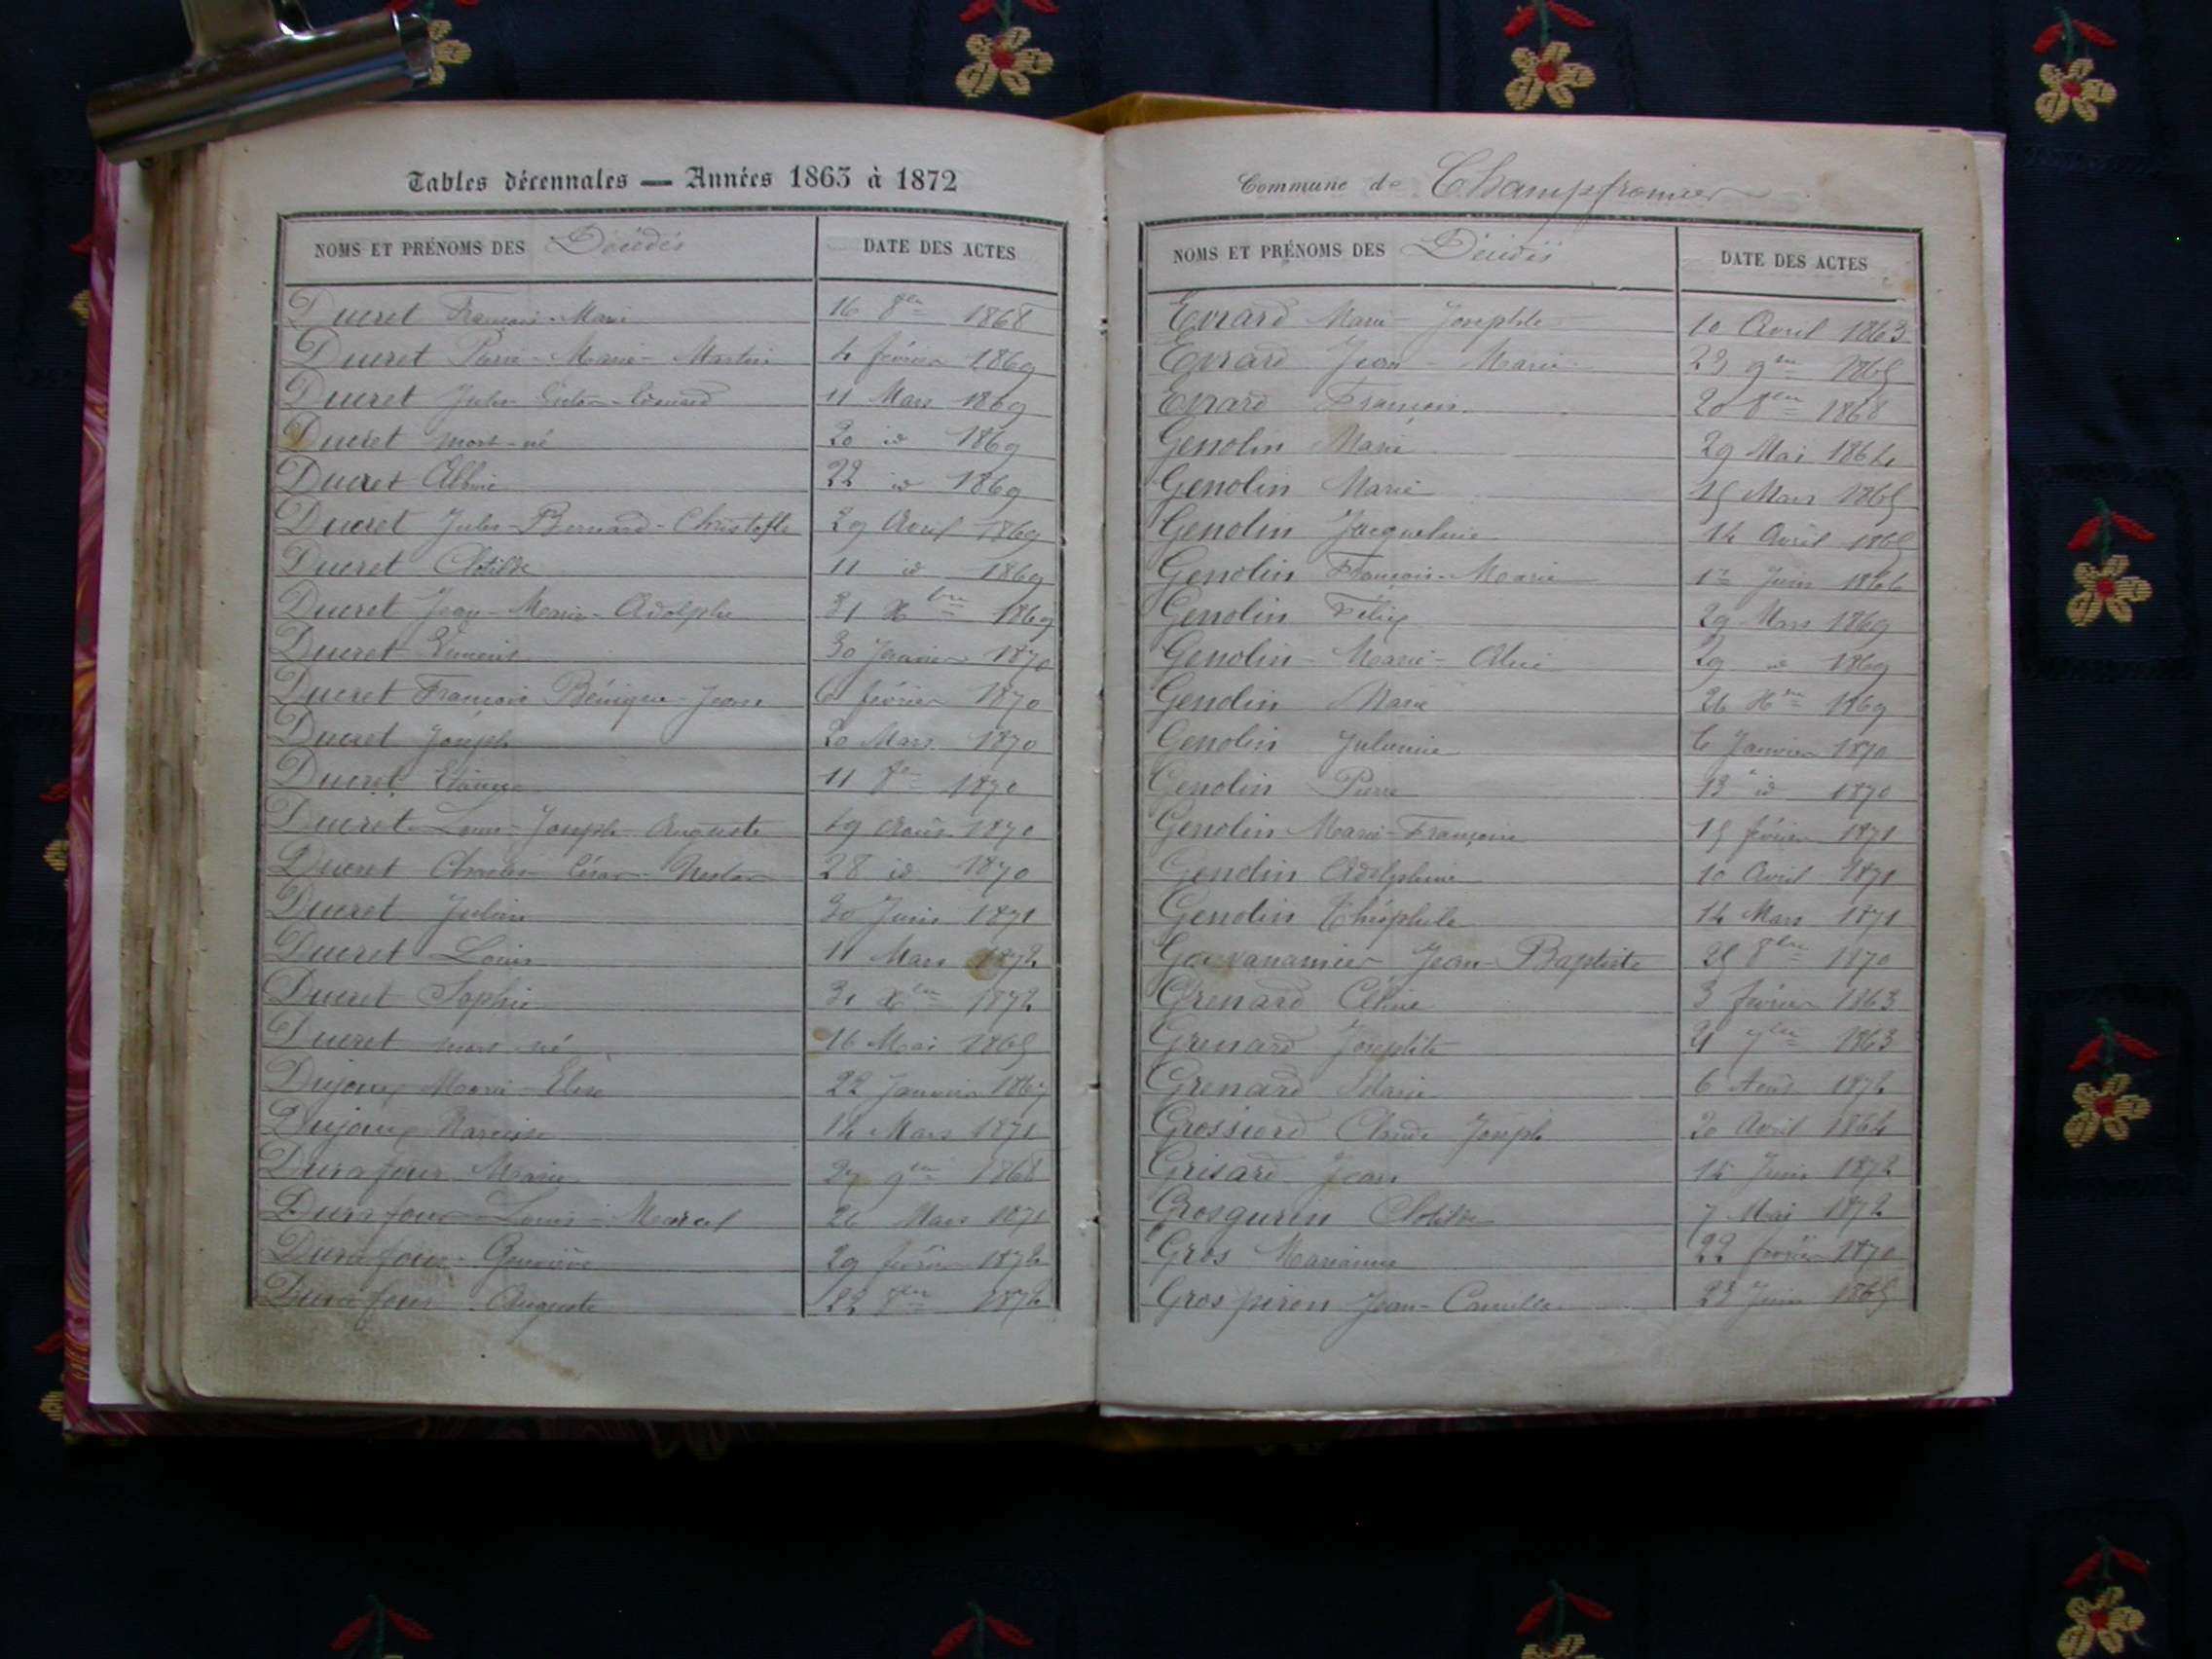 Tables décennales — Années 1863 à 1872
NOMS ET PRÉNOMS DES Décédés DATE DES ACTES
Ducret François-Marie 16 8bre 1868
Ducret Pierre-Marie-Martin 4 février 1869
Ducret Jules Edouard 11 Mars 1869
Ducret mort-né 20 id 1869
Ducret Albine 22 id 1869
Ducret Jules-Bernard-Christofle 29 Avril 1869
Ducret Clotilde 11 id 1869
Ducret Jean-Marie-Adolphe 31 Xbre 1869
Ducret 30 Janvier 1870
Ducret François Bénigne-Jean 6 février 1870
Ducret Joseph 20 Mars 1870
Ducret Etienne 11 1870
Ducret Louis-Joseph-Auguste 19 Août 1870
Ducret Charles César Nestor 28 id 1870
Ducret Julien 30 Juin 1871
Ducret Louis 11 Mars 1872
Ducret Sophie 31 Xbre 1872
Ducret mort-né 16 Mai 1865
Dujoux Marie-Elise 22 Janvier 1867
Dujoux Narcisse 14 Mars 1871
Durafour Marie 27 9bre 1868
Durafour Louis-Marcel 26 Mars 1871
Durafour Geneviève 29 février 1872
Durafour Auguste 22 8bre 1872
Commune de Champfromier
NOMS ET PRÉNOMS DES Décédés DATE DES ACTES
Evrard Marie Josephte 10 Avril 1863
Evrard Jean-Marie 23 9bre 1865
Evrard François 20 8bre 1868
Genolin Marie 29 Mai 1864
Genolin Marie 15 Mars 1865
Genolin Jacqueline 14 Avril 1865
Genolin François-Marie 1er Juin 1866
Genolin Félix 29 Mars 1869
Genolin-Marie-Alice 29 id 1869
Genolin Marie 26 Xbre 1869
Genolin Julienne 6 Janvier 1870
Genolin Pierre 13 id 1870
Genolin Marie-Françoise 15 février 1871
Genolin Adelphine 10 Avril 1871
Genolin Théophile 14 Mars 1871
Jean-Baptiste 25 8bre 1870
Grenard Céline 3 février 1863
Grenard Josephte 21 7bre 1863
Grenard Marie 6 Août 1872
Grossiord Claude Joseph 20 Avril 1864
Grisard Jean 14 Juin 1872
Grosgurin Clotilde 7 Mai 1872
Gros Marianne 22 février 1870
Grospiron Jean-Camille 23 Juin 1865